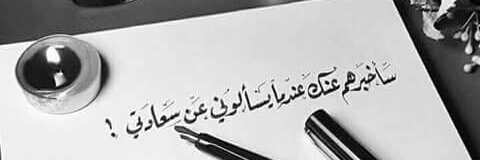 سأخبرهم عنك عندما يسألوني عن سعادتي !